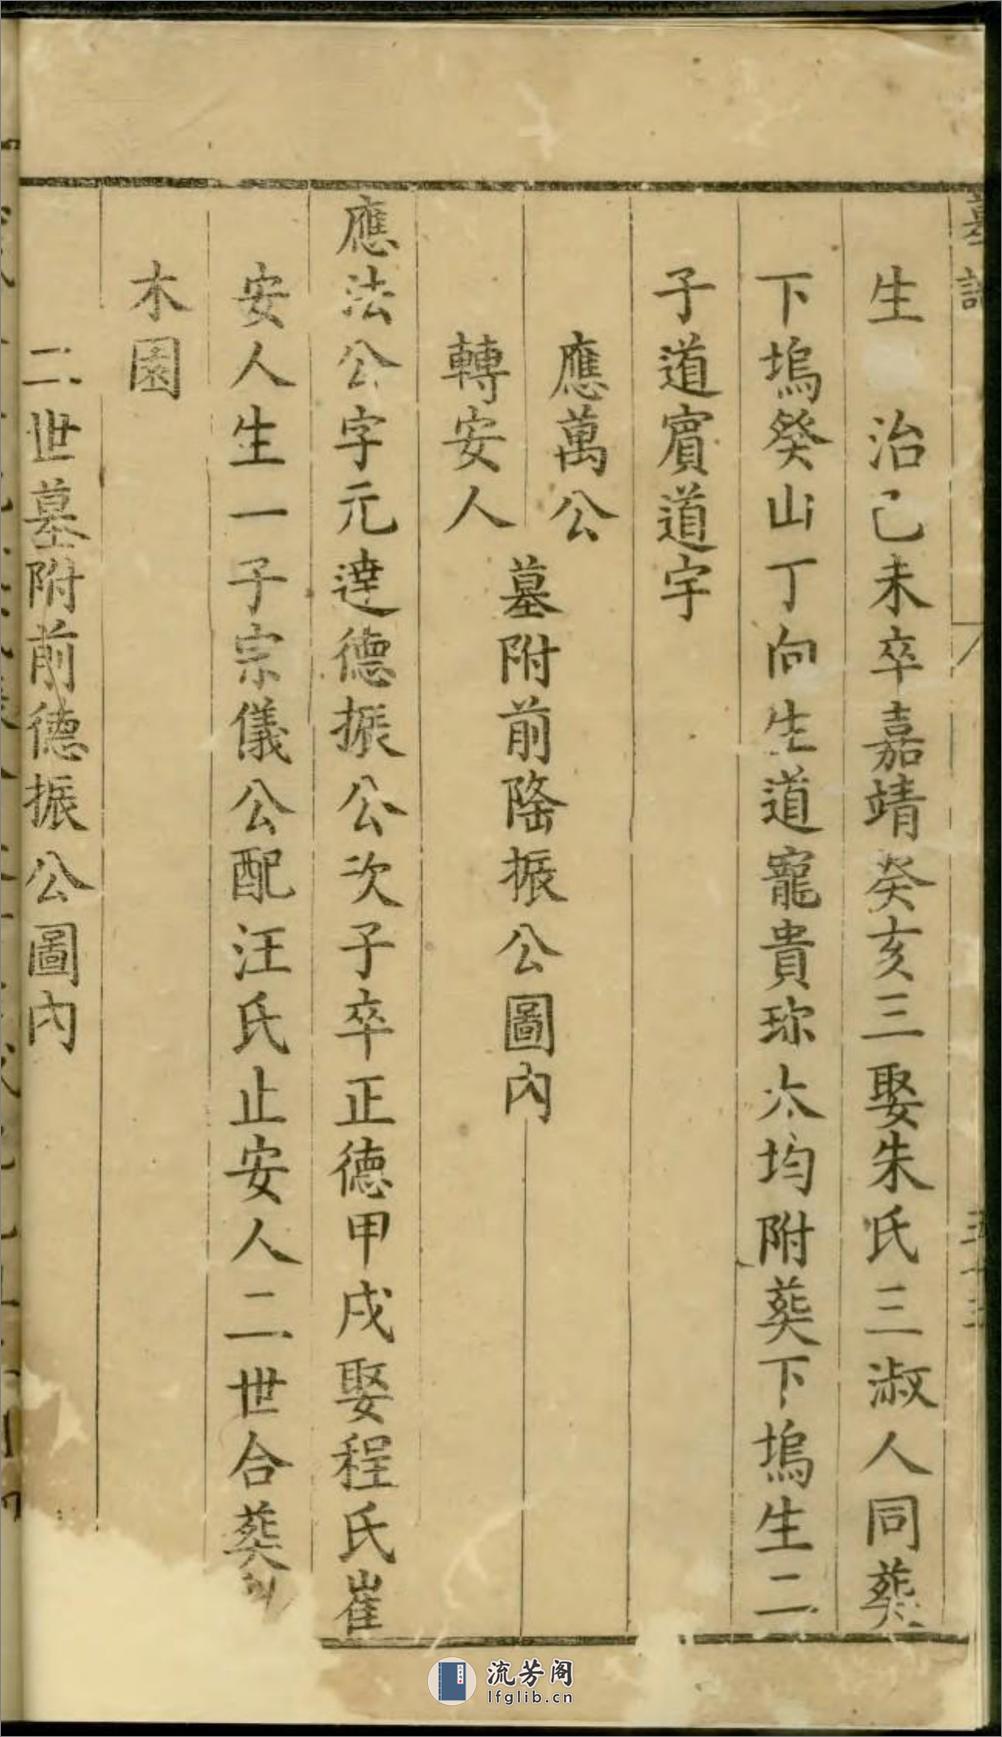 墓
生 治己未卒嘉靖癸亥三娶朱氏三淑人同葬
下塢癸山丁向生道寵貴珎六均附葬下塢生二
子道賔道宇
應萬公
轉安人
墓附前隆振公圖內
應法公字元達德振公次子卒正德甲戌娶程氏崔
安人生一子宗儀公配汪氏止安人二世合葬
木園
二世墓附前德振公圖內
流芳阁
lfglib.cn